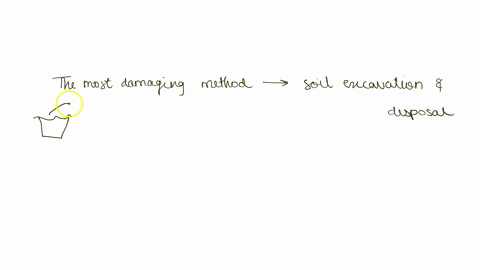 The most damaging method → soil excavation &
disposal